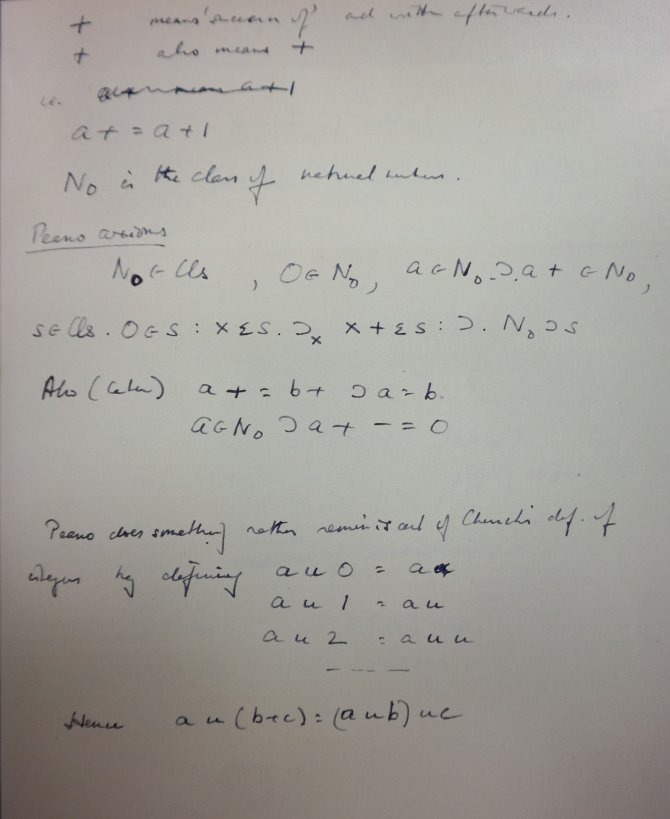 + means 'successor of' and written afterwards.
+ also means +
i.e. a+ means a+1
a+ = a+1
N₀ is the class of natural numbers.
Peano axioms
N₀ ϵ Cls , 0 ϵ N₀, a ϵ N₀ .⊃. a + ϵ N₀,
s ϵ Cls . 0 ϵ s : x ε s . ⊃ₓ x + ε s : ⊃. N₀ ⊃ s
Also (later) a + = b + ⊃ a = b.
a ϵ N₀ ⊃ a + − = 0
Peano does something rather reminiscent of Church's def. of
integers by defining a u 0 = a
a u 1 = a u
a u 2 = a u u
— — —
Hence a u (b+c) = (a u b) u c